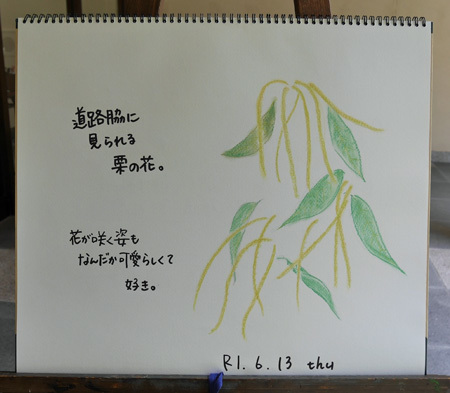 道路脇に
見られる
栗の花。
花が咲く姿も
なんだか可愛らしくて
好き。
R1.6.13 thu